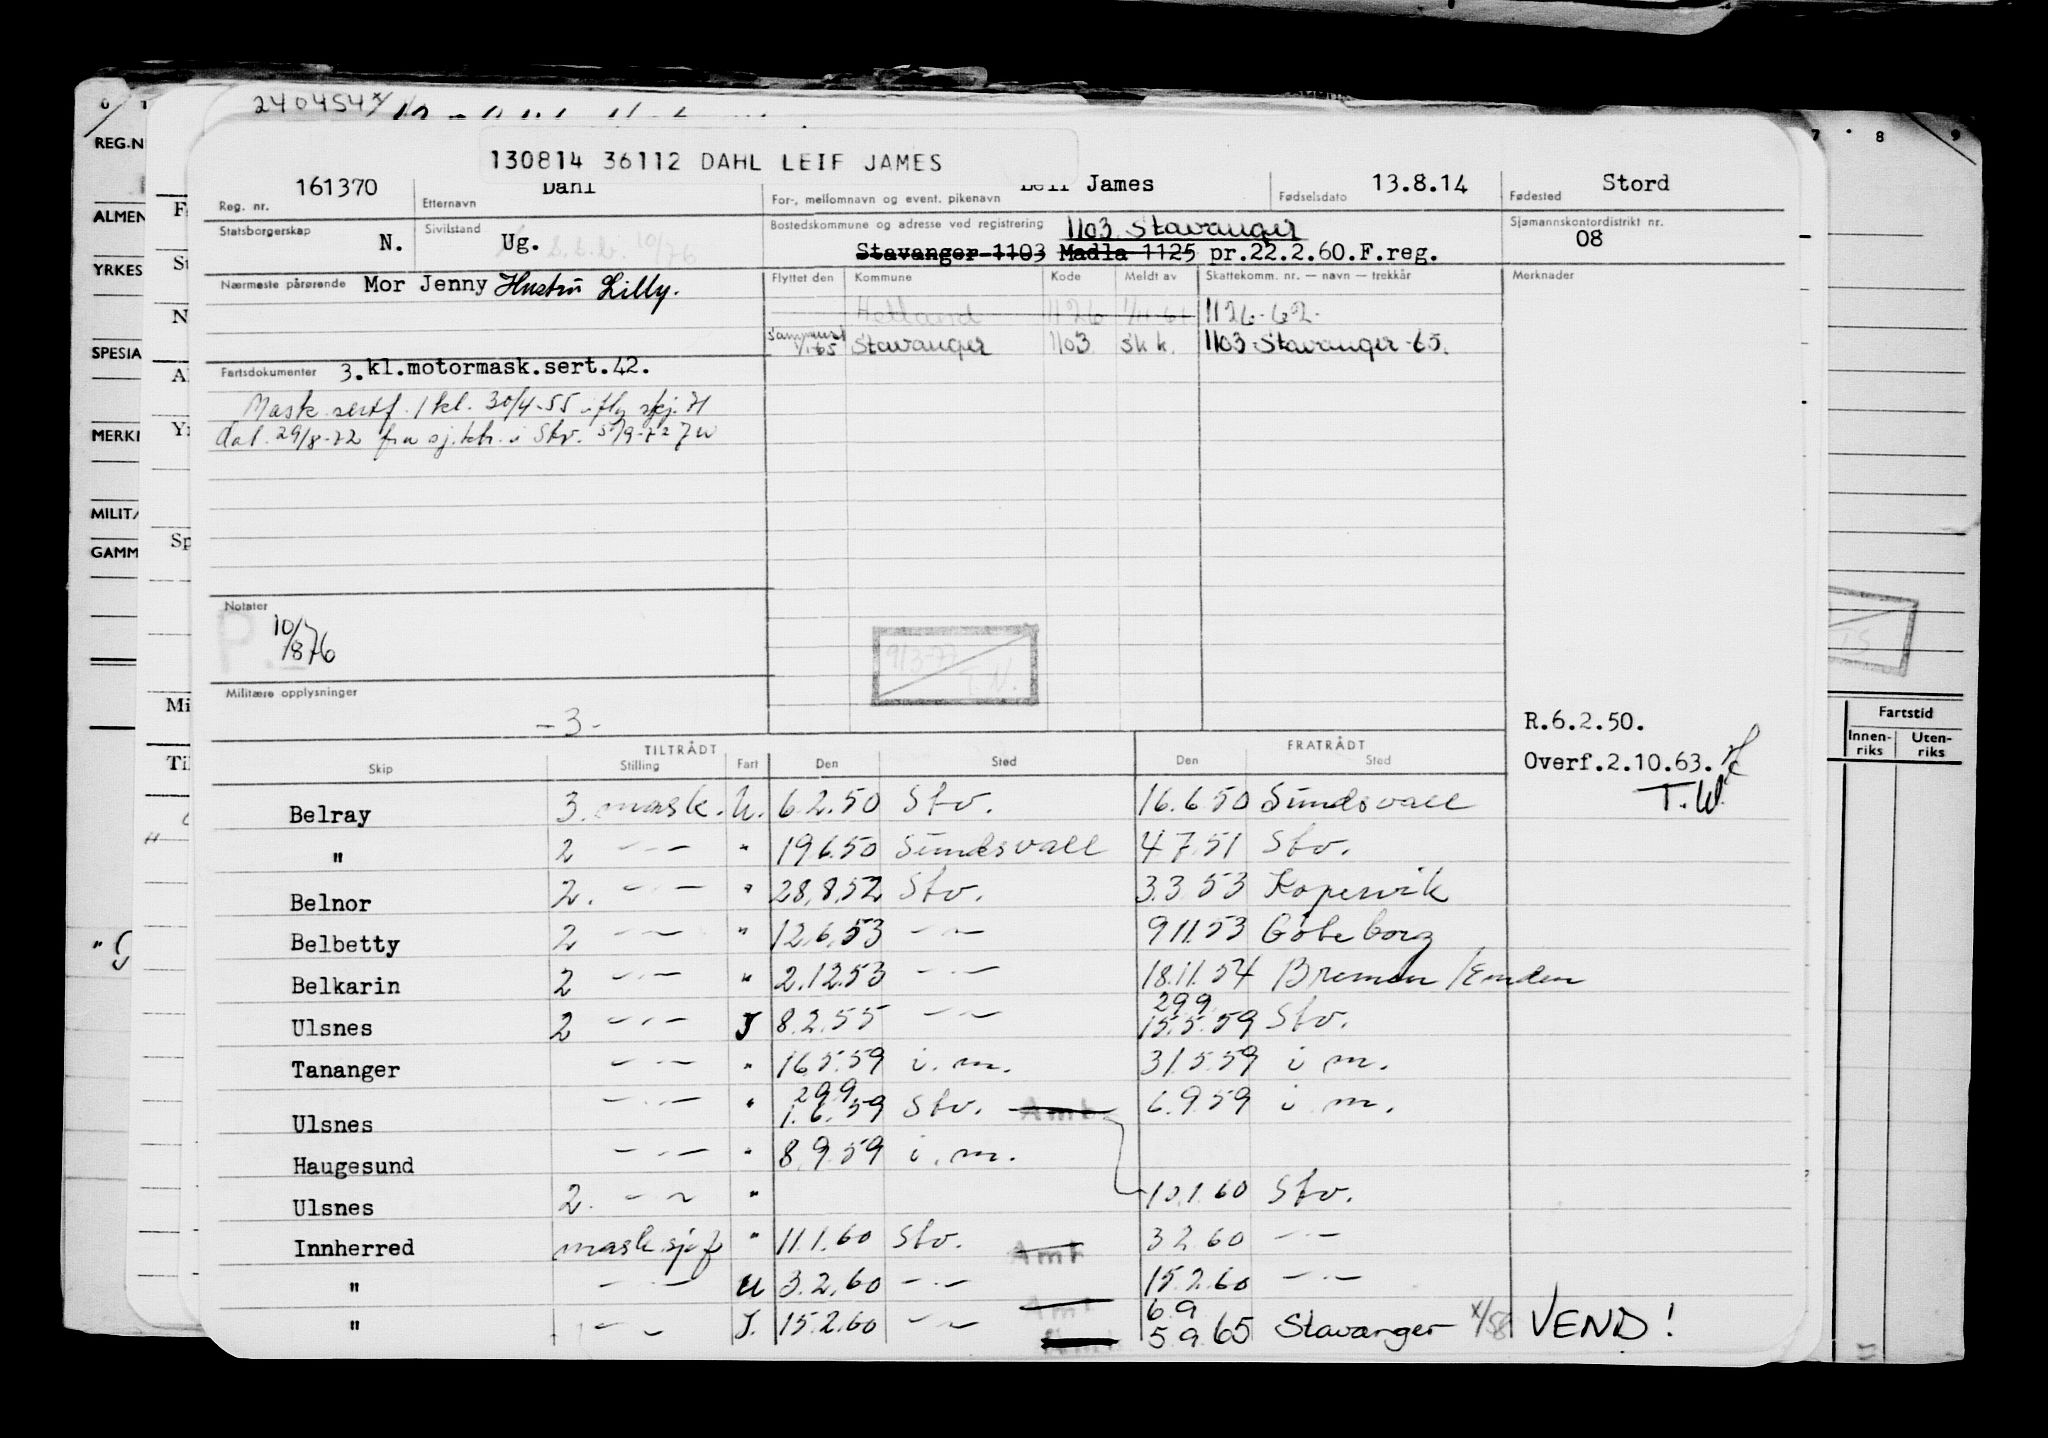 240454
130814 36112 DAHL LEIF JAMES
161370 Dahl Leif James 13.8.14 Stord
Reg. nr. Etternavn For-, mellomnavn og event. pikenavn Fødselsdato Fødested
Statsborgerskap N. Sivilstand Ug. Bostedskommune og adresse ved registrering 1103 Stavanger Sjømannskontordistrikt nr. 08
Stavanger 1103 Madla 1125 pr.22.2.60.F.reg.
Nærmeste pårørende Mor Jenny Hustru Lilly. Flyttet den Kommune Kode Meldt av Skattekomm. nr. — navn — trekkår Merknader
Hetland 1126 1126-62-
1/1-65 Stavanger 1103 sk k. 1103 Stavanger-65.
Fartsdokumenter 3.kl.motormask.sert.42.
Mask sertf. 1 kl. 30/4-55 iflg skj. 71
dat. 29/8-72 fra sj.ktr. i Stv. 5/9-72
Notater
10/876
9/3-77
Militære opplysninger
-3-
R.6.2.50.
Overf.2.10.63.
T.W.
TILTRÅDT FRATRÅDT
Skip Stilling Fart Den Sted Den Sted
Belray 3. mask. U. 6.2.50 Stv. 16.6.50 Sundsvall
" 2 —"— " 19.6.50 Sundsvall 4.7.51 Stv.
Belnor 2. —"— " 28.8.52 Stv. 3.3.53 Kopervik
Belbetty 2 —"— " 12.6.53 —"— 9.11.53 Göteborg
Belkarin 2 —"— " 2.12.53 —"— 18.11.54 Bremen/Emden
29.9.
Ulsnes 2 —"— J 8.2.55 —"— 15.5.59 Stv.
Tananger —"— " 16.5.59 i.m. 31.5.59 i m.
29.9
Ulsnes —"— " 1.6.59 Stv. Amt. 6.9.59 i m.
Haugesund —"— " 8.9.59 i.m.
Ulsnes 2. —"— " 10.1.60 Stv.
Innherred mask.sjef " 11.1.60 Stv. Amt 3.2.60 —"—
" —"— U 3.2.60 —"— 15.2.60 —"—
Amt 6.9
" —"— J. 15.2.60 —"— 5.9.65 Stavanger VEND!
REG.N
ALMEN
YRKES
SPESIA
MERK
MILIT
GAMM
St
Sp
Mi
Fartstid
Innen-riks Uten-riks
7 8 9